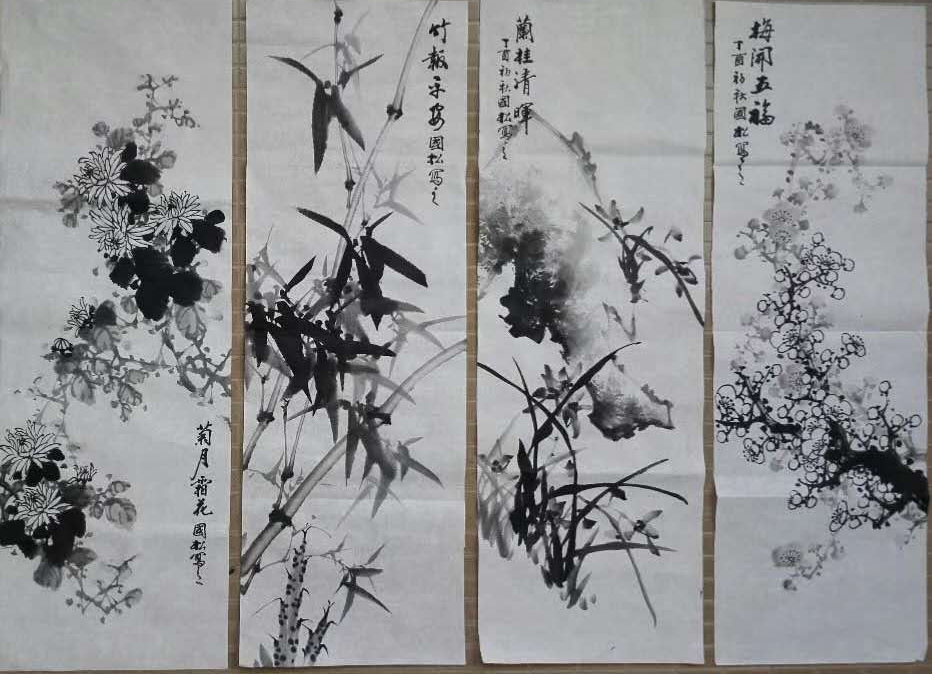 梅開五福
丁酉初秋國松寫之
蘭桂清暉
丁酉初秋國松寫之
竹報平安 國松寫之
菊月霜花 國松寫之